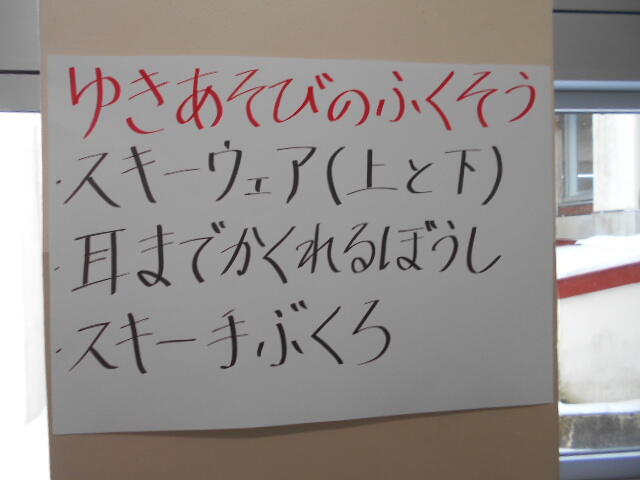 ゆきあそびのふくそう
・スキーウェア(上と下)
・耳までかくれるぼうし
・スキー手ぶくろ